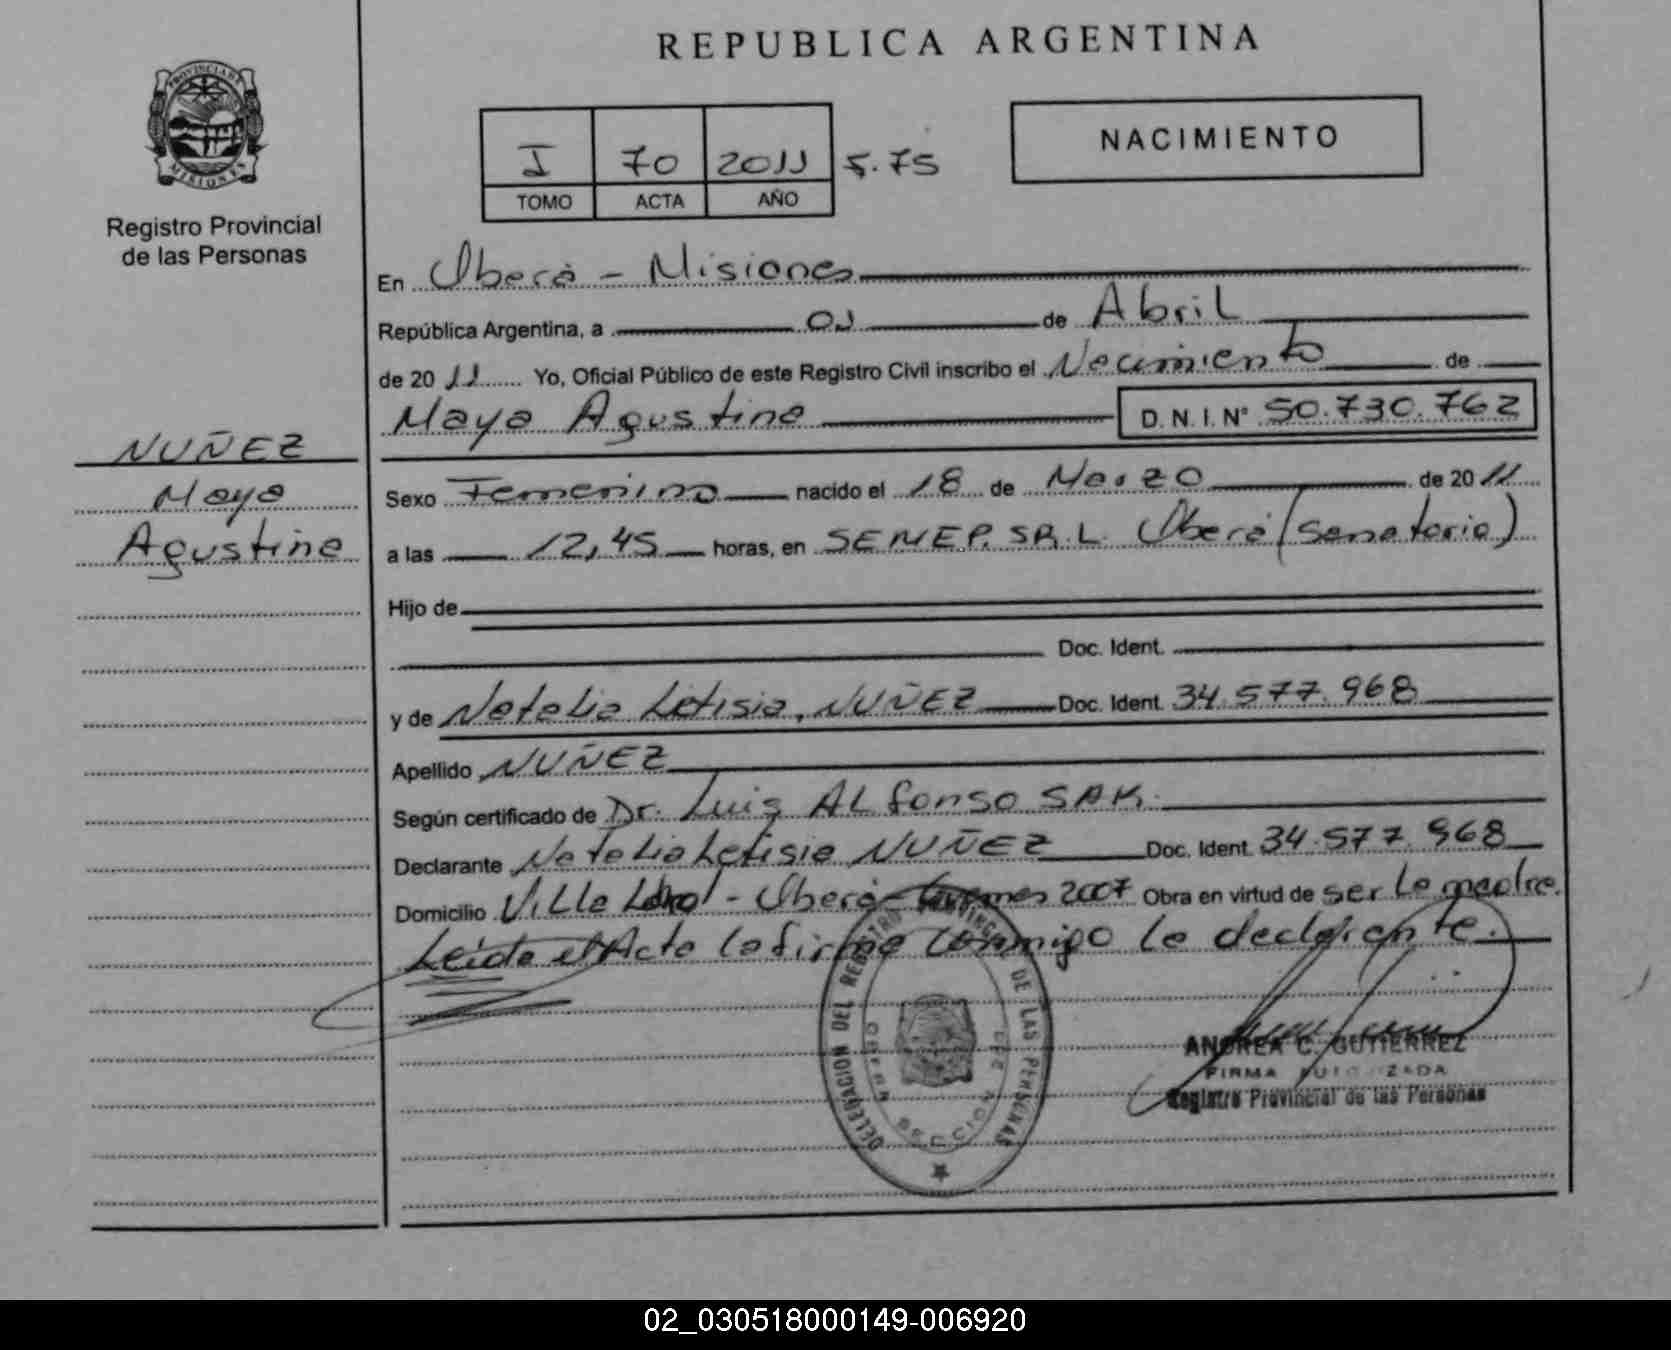 REPUBLICA ARGENTINA
PROVINCIA DE
MISIONES
Registro Provincial
de las Personas
I 70 2011 5.75
TOMO ACTA AÑO
NACIMIENTO
En Oberá - Misiones
República Argentina, a 01 de Abril
de 2011 Yo, Oficial Público de este Registro Civil inscribo el Nacimiento de
Maya Agustina D.N.I. Nº 50.730.762
NUÑEZ
Maya
Agustina
Sexo Femenino nacido el 18 de Marzo de 2011
a las 12,45 horas, en SENEP. SR.L. Oberá (Sanatorio)
Hijo de
Doc. Ident.
y de Natalia Letisia, NUÑEZ Doc. Ident. 34.577.968
Apellido NUÑEZ
Según certificado de Dr. Luis ALfonso SAK.
Declarante Natalia Letisia NUÑEZ Doc. Ident. 34.577.968
Domicilio Villa - Oberá - 2007 Obra en virtud de ser La madre.
Leída el Acta la firma conmigo la declarante.
DELEGACION DEL REGISTRO PROVINCIAL DE LAS PERSONAS
OBERA SECCION
ANDREA C. GUTIERREZ
FIRMA AUTORIZADA
Registro Provincial de las Personas
02_030518000149-006920